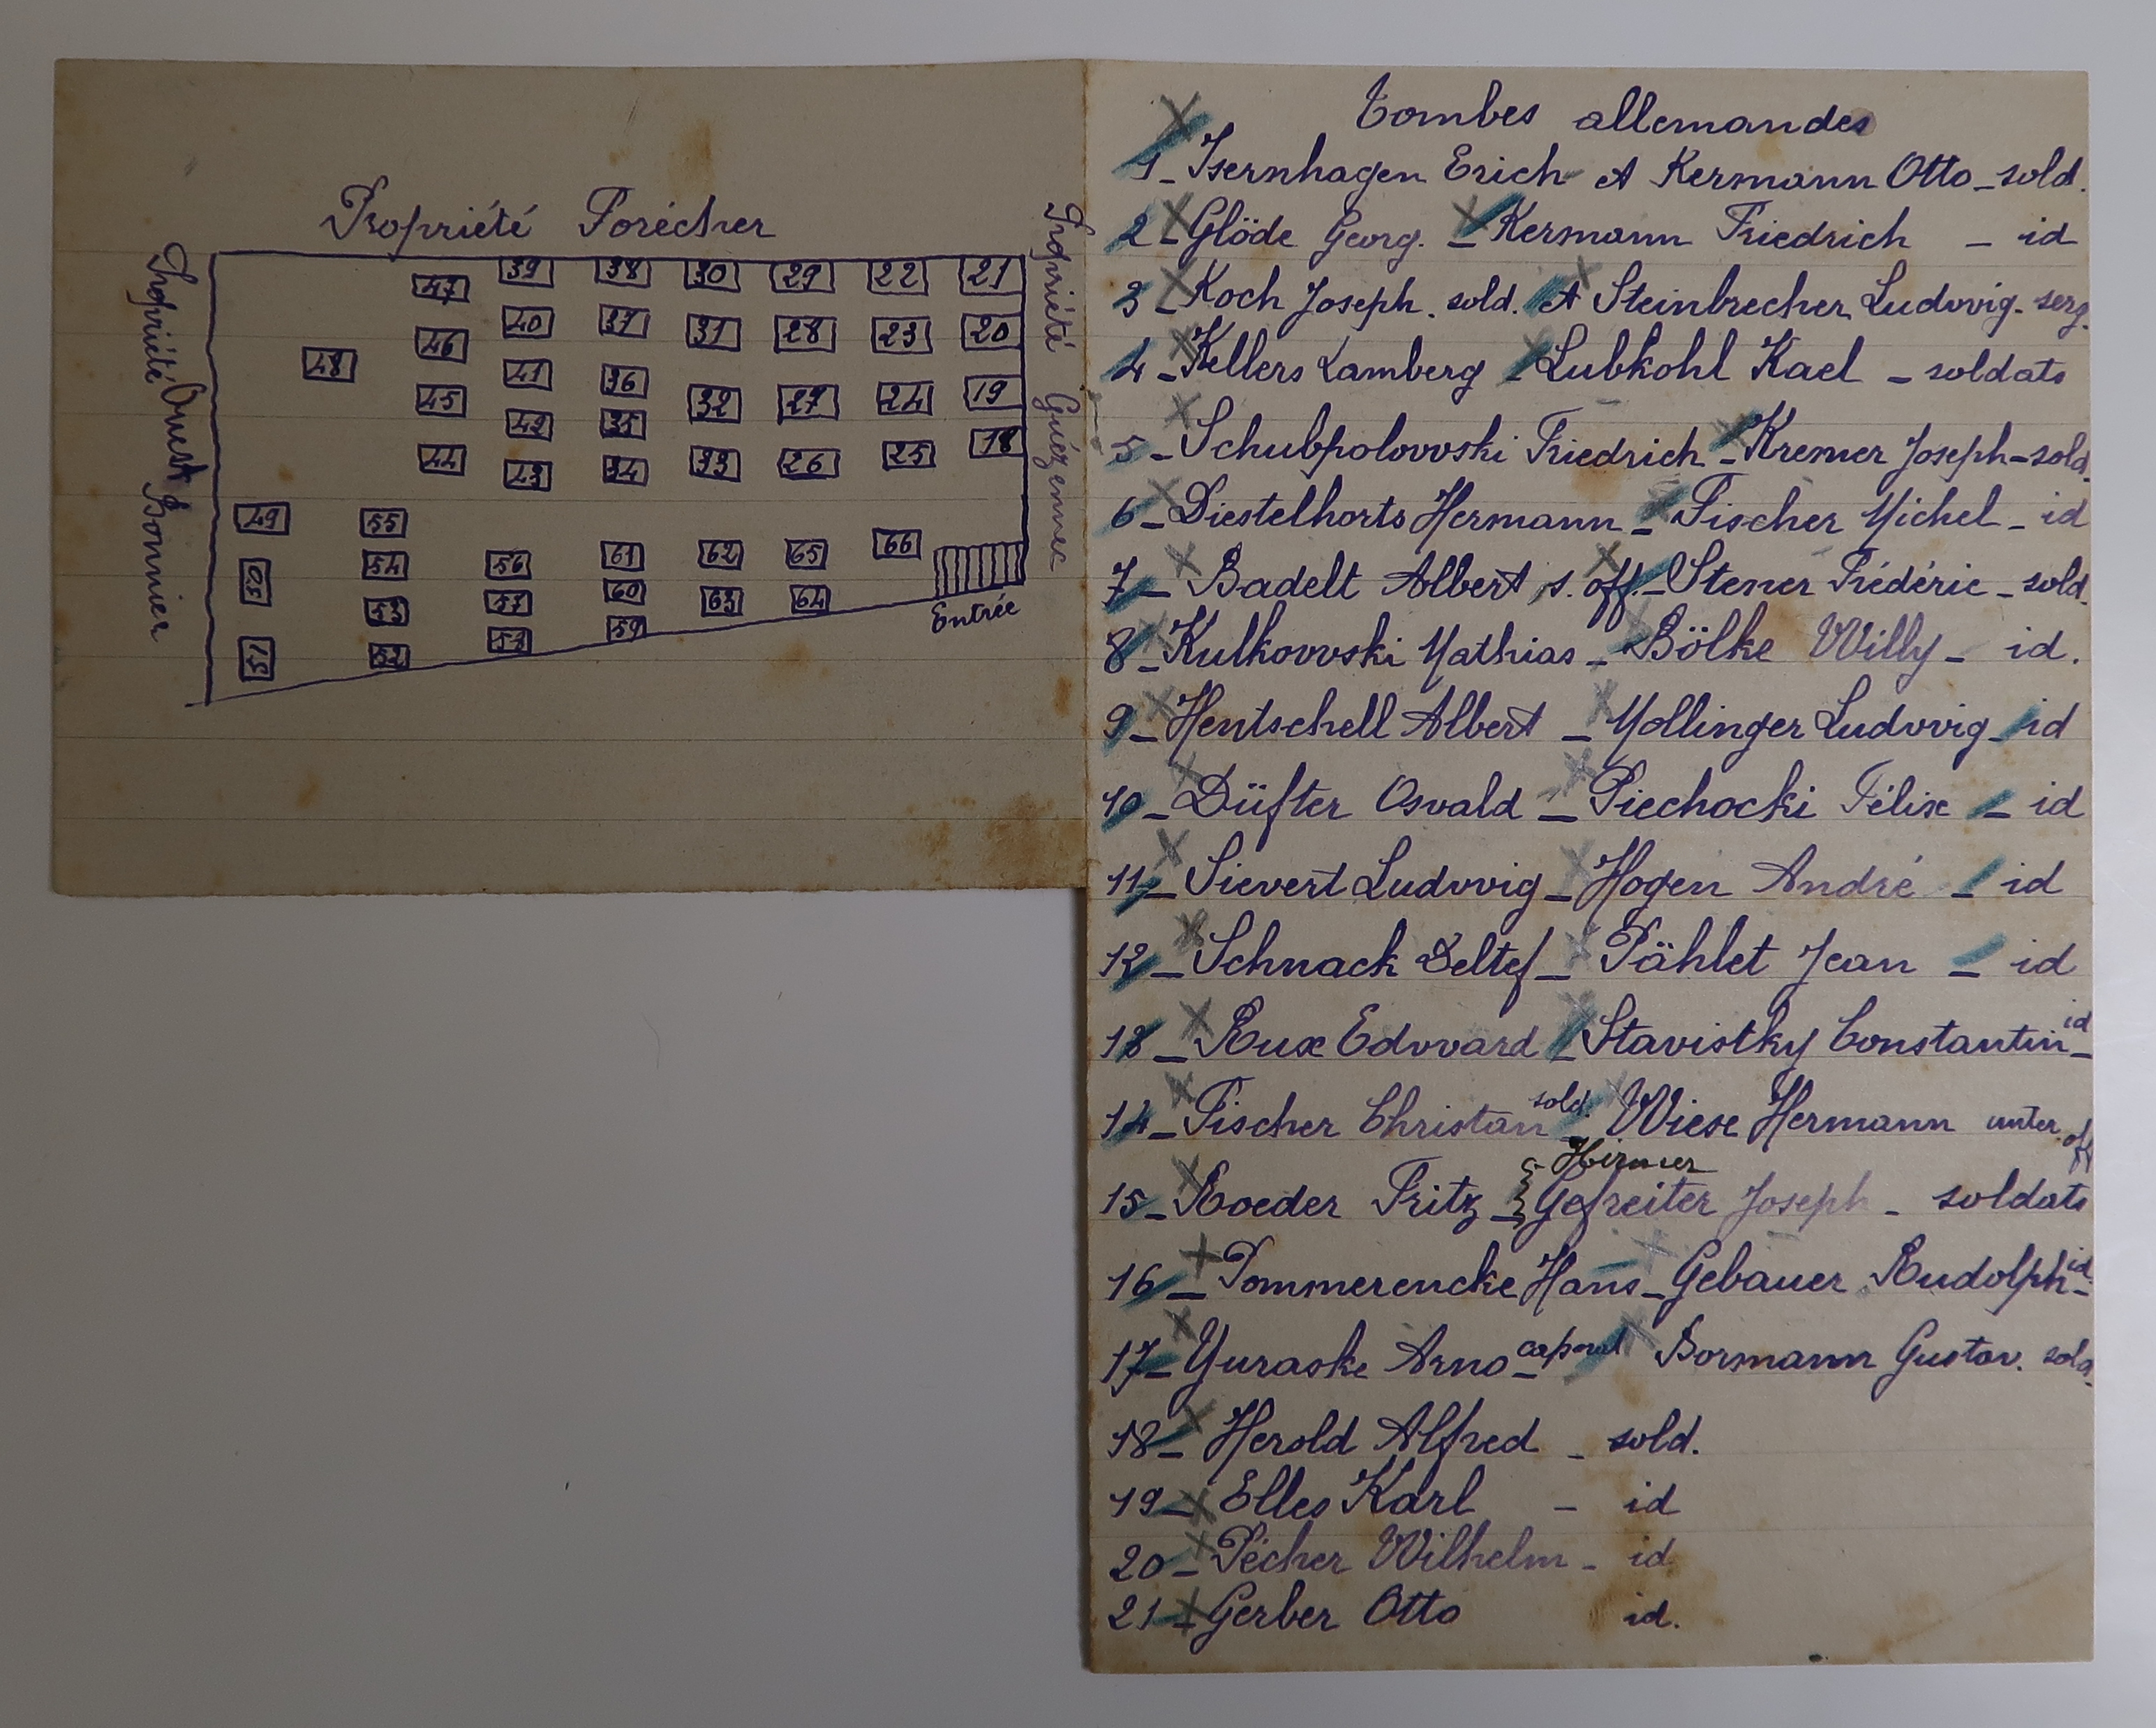 Propriété Forécher
Propriété Ouest Bonnier
Propriété Guézennec
47 39 38 30 29 22 21
46 40 37 31 28 23 20
48 45 41 36 32 27 24 19
44 42 35 33 26 25 18
43 34
49 55 66
50 54 56 61 62 65
53 57 60 63 64
51 52 58 59
Entrée
Tombes allemandes
1 - Isernhagen Erich et Kermann Otto - sold.
2 - Glöde Georg. - Kermann Friedrich - id
3 - Koch Joseph. sold. et Steinbrecher Ludwig. serg.
4 - Kellers Lamberg - Lubkohl Kael - soldats
5 - Schubpolowski Friedrich - Kremer Joseph - sold.
6 - Diestelhorts Hermann - Fischer Michel - id
7 - Badelt Albert s. off. - Stener Frédéric - sold.
8 - Kulkowski Mathias - Bölke Willy - id.
9 - Hentschell Albert - Mollinger Ludwig - id
10 - Düfter Osvald - Piechocki Félix - id
11 - Sievert Ludwig - Hogen André - id
12 - Schnack Deltef - Pählet Jean - id
13 - Rux Edward - Stavistky Constantin - id
14 - Fischer Christan sold. - Wiese Hermann unter off
Hirmer
15 - Roeder Fritz - Gefreiter Joseph - soldats
16 - Pommerencke Hans - Gebauer Rudolph - id.
17 - Yuraske Arno - caporal Bormann Gustav. sold.
18 - Herold Alfred - sold.
19 - Elles Karl - id
20 - Pécher Wilhelm - id
21 - Gerber Otto id.